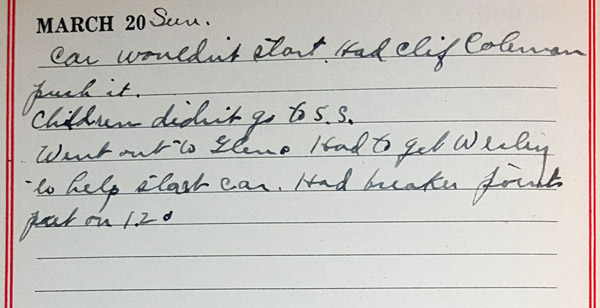 MARCH 20 Sun.
Car wouldn't start. Had Clif Coleman
push it.
Children didn't go to S.S.
Went out to Glens. Had to get Wesley
to help start car. Had breaker points
put on 1.20